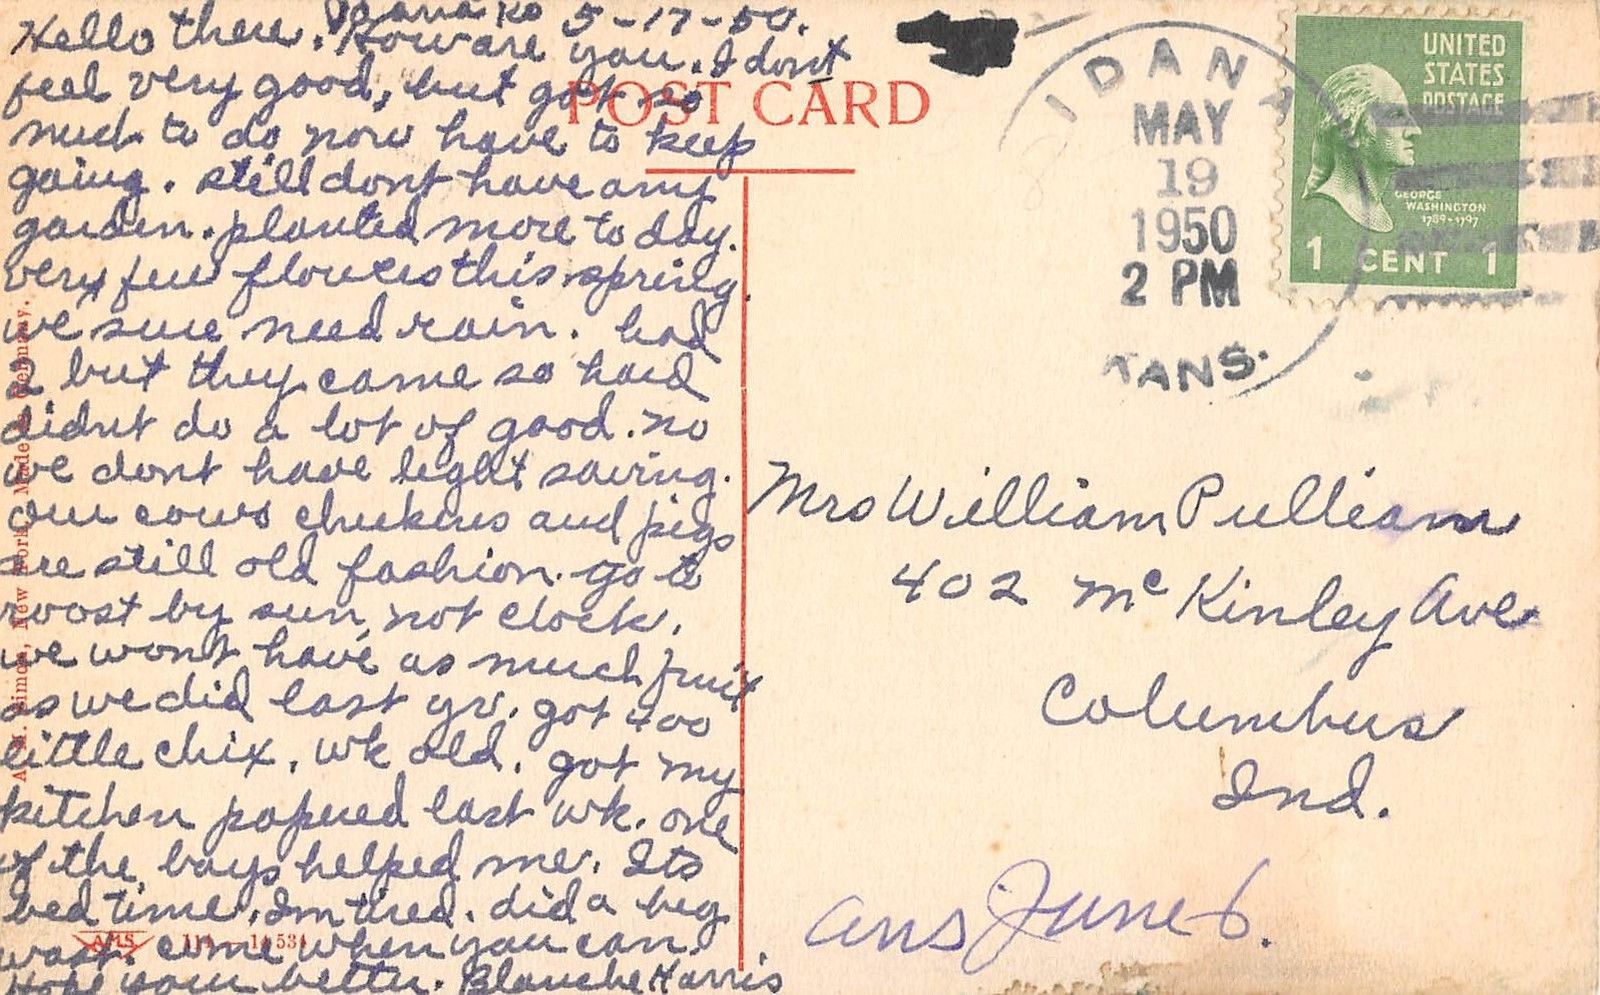 Idana Ks 5-17-50.
Hello there. How are you. I dont
feel very good, but got so
much to do now have to keep
going. still dont have any
garden. planted more to day.
very few flowers this spring.
we sure need rain. had
2 but they came so hard
didnt do a lot of good. no
we dont have light saving.
our cows chickens and pigs
are still old fashion. go to
roost by sun, not clock.
we wont have as much fruit
as we did last yr. got 400
little chix, wk old. got my
kitchen papered last wk. one
of the boys helped me. Its
bed time. Im tired. did a big
wash. come when you can.
Hope your better. Blanche Harris
POST CARD
IDANA
MAY
19
1950
2 PM
KANS.
UNITED
STATES
POSTAGE
GEORGE
WASHINGTON
1789-1797
1 CENT 1
Mrs William Pulliam
402 McKinley Ave
Columbus
Ind.
ans June 6.
A. M. Simon, New York. Made in Germany.
AMS